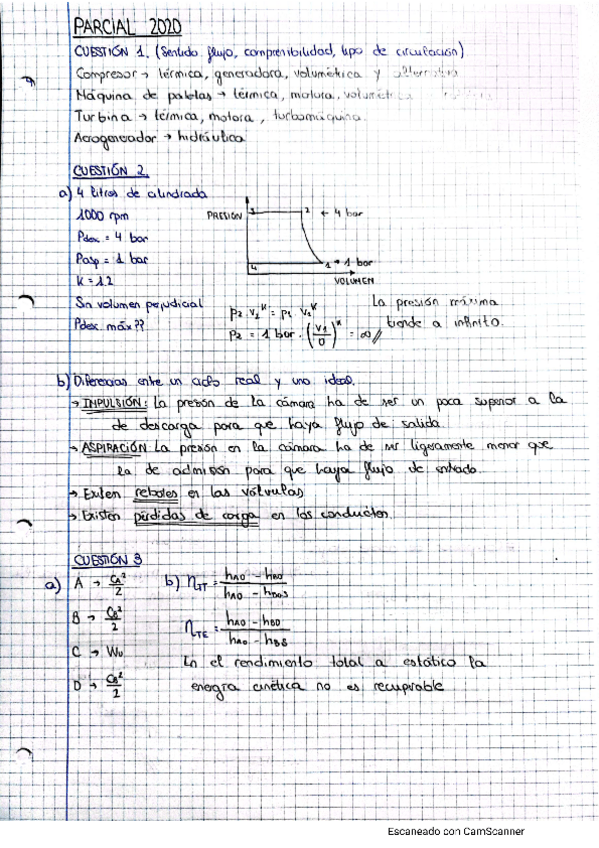 PARCIAL 2020
CUESTIÓN 1. (Sentido flujo, compresibilidad, tipo de circulación)
Compresor → térmica, generadora, volumétrica y alternativa
Máquina de paletas → térmica, motora, volumétrica
Turbina → térmica, motora, turbomáquina
Aerogenerador → hidráulica
CUESTIÓN 2.
a) 4 litros de cilindrada
1000 rpm
Pdes = 4 bar
Pasp = 1 bar
K = 1.2
Sin volumen perjudicial
Pdes máx??
PRESIÓN
3
2 ← 4 bar
4
1 ← 1 bar
VOLUMEN
P2 · V2^K = P1 · V1^K
P2 = 1 bar · (V1/0)^K = ∞//
La presión máxima
tiende a infinito.
b) Diferencias entre un ciclo real y uno ideal.
→ IMPULSIÓN: La presión de la cámara ha de ser un poco superior a la
de descarga para que haya flujo de salida.
→ ASPIRACIÓN La presión en la cámara ha de ser ligeramente menor que
la de admisión para que haya flujo de entrada.
→ Existen rebotes en las válvulas
→ Existen pérdidas de carga en los conductos.
CUESTIÓN 3
a) A → CA²/2
B → CB²/2
C → Wu
D → CB²/2
b) ηTT = (hA0 - hB0)/(hA0 - hB0S)
ηTE = (hA0 - hB0)/(hA0 - hBS)
En el rendimiento total a estático la
energía cinética no es recuprable
Escaneado con CamScanner